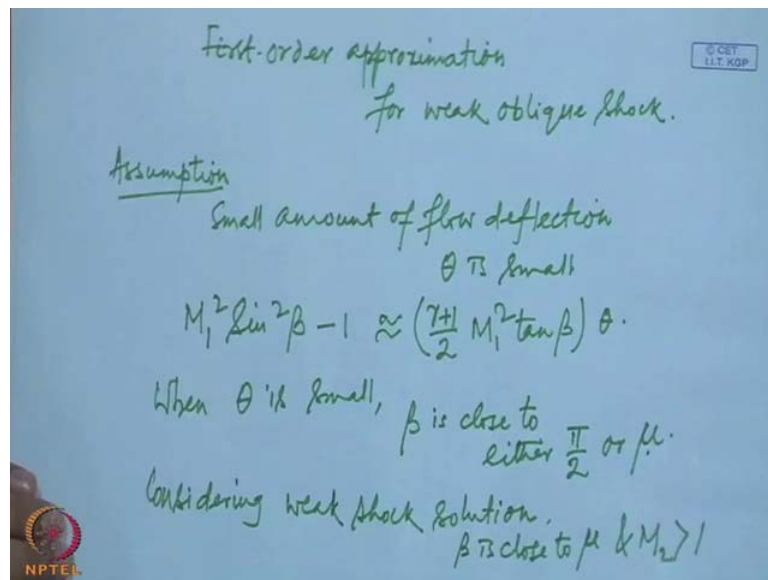 First-order approximation
© CET
I.I.T. KGP
for weak oblique shock.
Assumption
Small amount of flow deflection
θ is small
M₁² Sin²β - 1 ≈ (γ+1/2 M₁² tan β) θ.
When θ is small, β is close to
either π/2 or μ.
Considering weak shock solution.
β is close to μ & M₂ > 1
NPTEL